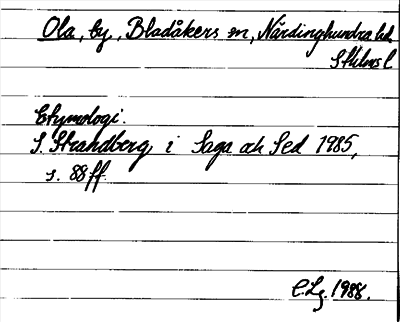 Ola, by, Bladåkers sn, Närdinghundra hd
Sthlms l.
Etymologi.
S. Strandberg i Saga och Sed 1985,
s. 88 ff.
C.Lg. 1988.